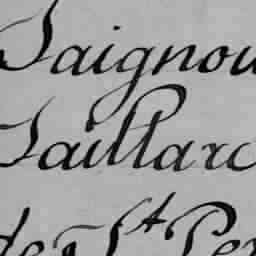 Saignou
Saillard
de St Per